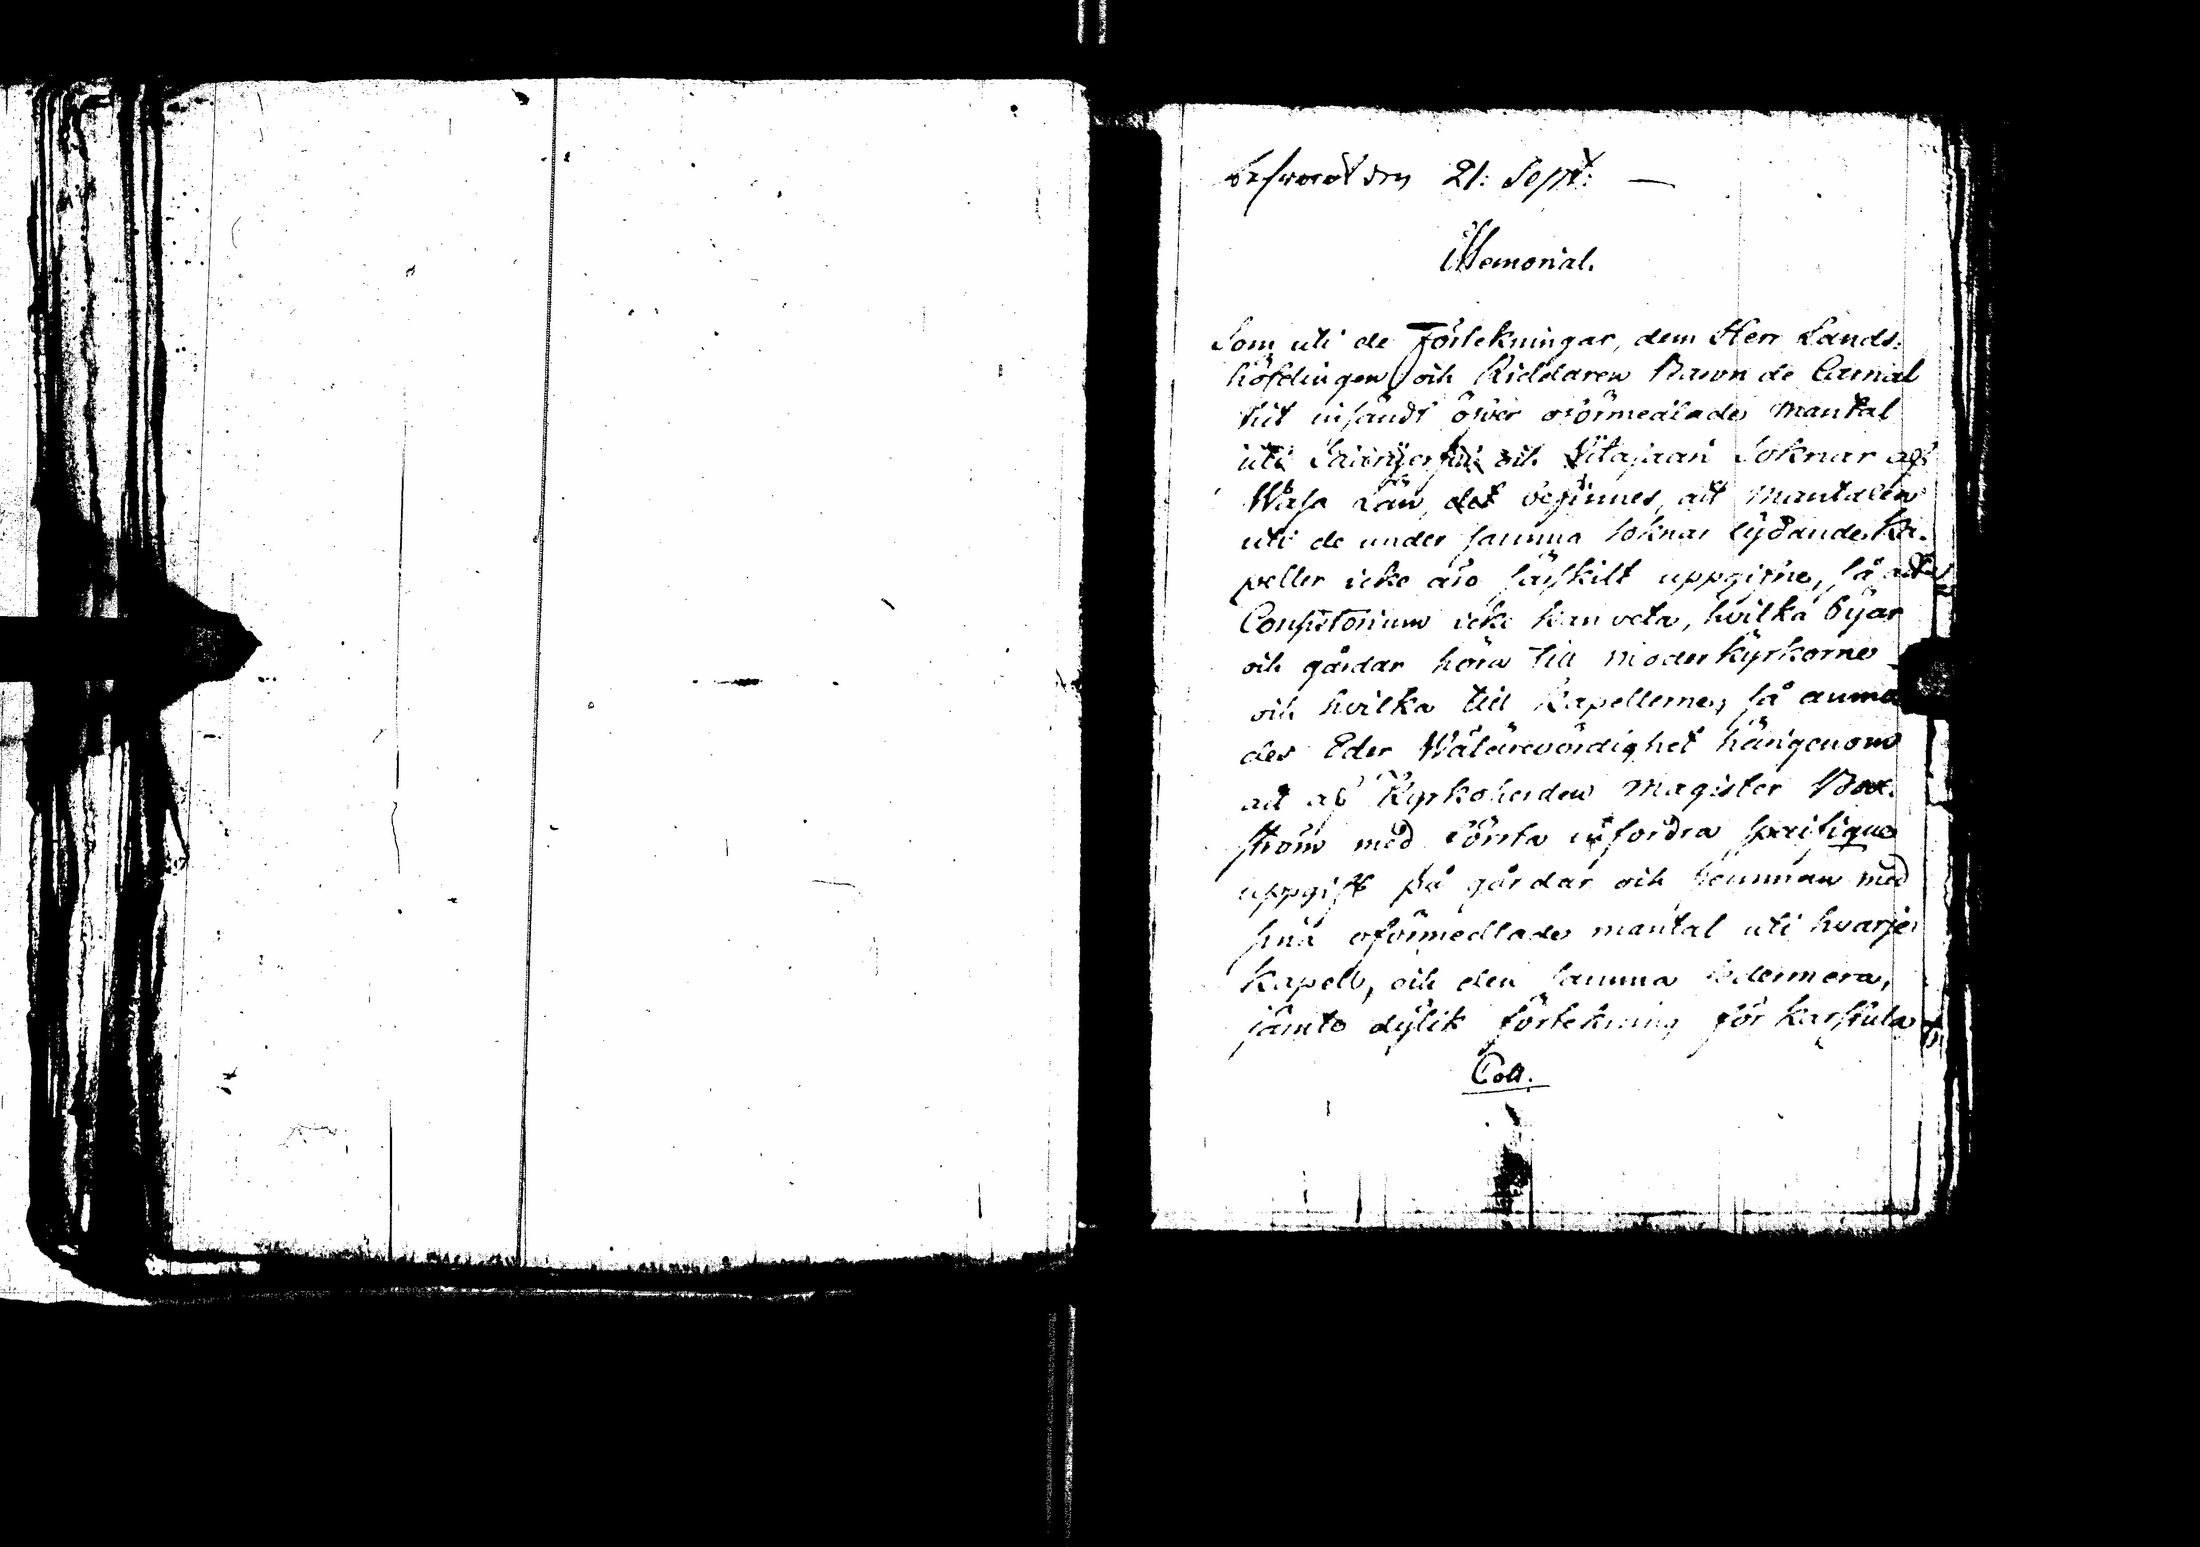 besvarat den 21: Sept: —
Memorial.
Som uti de Förtekningar, dem Herr Lands-
höfdingen och Riddaren Baron de Carnal
hit insändt öfver oförmedlade mantal
uti och Viitasaari Soknar af
Wasa Län, det befinnes, att mantalen
uti de under samma soknar lydande Ka-
peller icke äro särskilt uppgifne, så att
Consistorium icke kan veta, hvilka byar
och gårdar höra till moderkyrkorne
och hvilka till Kapellerne, så anmo-
des Eder Wälärevördighet härigenom
att af Kyrkoherden Magister Box-
ström med första infordra specifique
uppgift på gårdar och hemman med
sina oförmedlade mantal uti hvarje
Kapell, och den samma sedermera,
jämte dylik förtekning för Karstula
Coll.